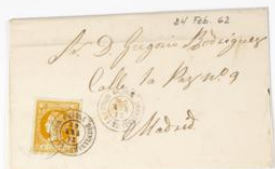 24 Feb. 62
Sr. D Gregorio Rodriguez
Calle la Paz nº 9
Madrid